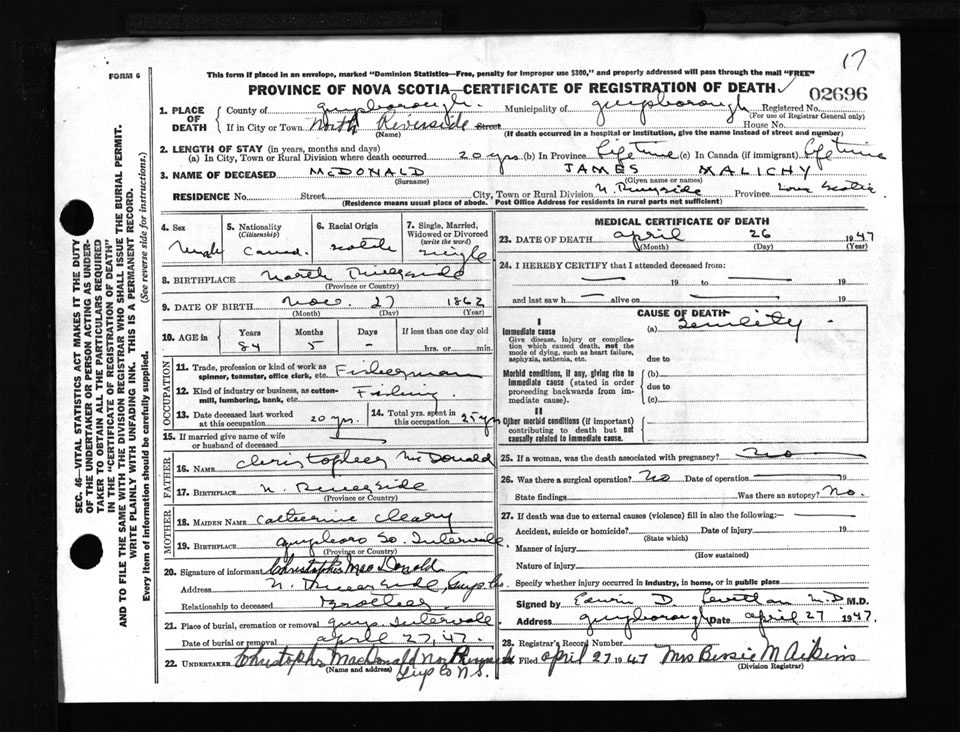 17
FORM 6
This form if placed in an envelope, marked "Dominion Statistics—Free, penalty for improper use $300," and properly addressed will pass through the mail "FREE"
PROVINCE OF NOVA SCOTIA—CERTIFICATE OF REGISTRATION OF DEATH
02696
1. PLACE OF DEATH
County of Guysborough. Municipality of Guysborough Registered No.
(For use of Registrar General only)
If in City or Town North Riverside Street House No.
(Name) (If death occurred in a hospital or institution, give the name instead of street and number)
2. LENGTH OF STAY (in years, months and days)
(a) In City, Town or Rural Division where death occurred 20 yrs (b) In Province Life time (c) In Canada (if immigrant) Life time
3. NAME OF DECEASED McDONALD JAMES MALICHY
(Surname) (Given name or names)
RESIDENCE No. Street City, Town or Rural Division N. Riverside Province Nova Scotia
(Residence means usual place of abode. Post Office Address for residents in rural parts not sufficient)
SEC. 46—VITAL STATISTICS ACT MAKES IT THE DUTY
OF THE UNDERTAKER OR PERSON ACTING AS UNDER-
TAKER TO OBTAIN ALL THE PARTICULARS REQUIRED
IN THE "CERTIFICATE OF REGISTRATION OF DEATH"
AND TO FILE THE SAME WITH THE DIVISION REGISTRAR WHO SHALL ISSUE THE BURIAL PERMIT.
WRITE PLAINLY WITH UNFADING INK. THIS IS A PERMANENT RECORD.
Every item of information should be carefully supplied. (See reverse side for instructions.)
4. Sex
5. Nationality (Citizenship) Canad.
6. Racial Origin Scotch
7. Single, Married, Widowed or Divorced (write the word) Single
8. BIRTHPLACE North Riverside
(Province or Country)
9. DATE OF BIRTH Nov. 27 1862
(Month) (Day) (Year)
10. AGE in Years Months Days If less than one day old
84 5 - hrs. or min.
OCCUPATION
11. Trade, profession or kind of work as spinner, teamster, office clerk, etc. Fisherman
12. Kind of industry or business, as cotton-mill, lumbering, bank, etc. Fishing
13. Date deceased last worked at this occupation 20 yrs.
14. Total yrs. spent in this occupation 25 yrs
15. If married give name of wife or husband of deceased
FATHER
16. NAME Christopher McDonald
17. BIRTHPLACE N. Riverside
(Province or Country)
MOTHER
18. MAIDEN NAME Catherine Cleary
19. BIRTHPLACE Guysboro So. Intervale
(Province or Country)
20. Signature of informant Christopher MacDonald
Address N. Riverside, Guys Co.
Relationship to deceased Brother.
21. Place of burial, cremation or removal Guys. Intervale
Date of burial or removal April 27, 47.
22. UNDERTAKER Christopher MacDonald No Riverside
(Name and address) Guys Co N.S.
MEDICAL CERTIFICATE OF DEATH
23. DATE OF DEATH April 26 1947
(Month) (Day) (Year)
24. I HEREBY CERTIFY that I attended deceased from:
— 19 to — 19
and last saw h — alive on — 19
CAUSE OF DEATH
I
Immediate cause (a) Senility -
Give disease, injury or complica-
tion which caused death, not the
mode of dying, such as heart failure,
asphyxia, asthenia, etc. due to
Morbid conditions, if any, giving rise to (b)
immediate cause (stated in order due to
proceeding backwards from im-
mediate cause). (c)
II
Other morbid conditions (if important)
contributing to death but not
causally related to immediate cause.
25. If a woman, was the death associated with pregnancy? No
26. Was there a surgical operation? No Date of operation 19
State findings Was there an autopsy? No.
27. If death was due to external causes (violence) fill in also the following:—
Accident, suicide or homicide? Date of injury 19
(State which)
Manner of injury
(How sustained)
Nature of injury
Specify whether injury occurred in industry, in home, or in public place
Signed by Edwin D M.D M.D.
Address Guysborough Date April 27 1947.
28. Registrar's Record Number
Filed April 27 1947 Mrs Bessie M Aikins
(Division Registrar)